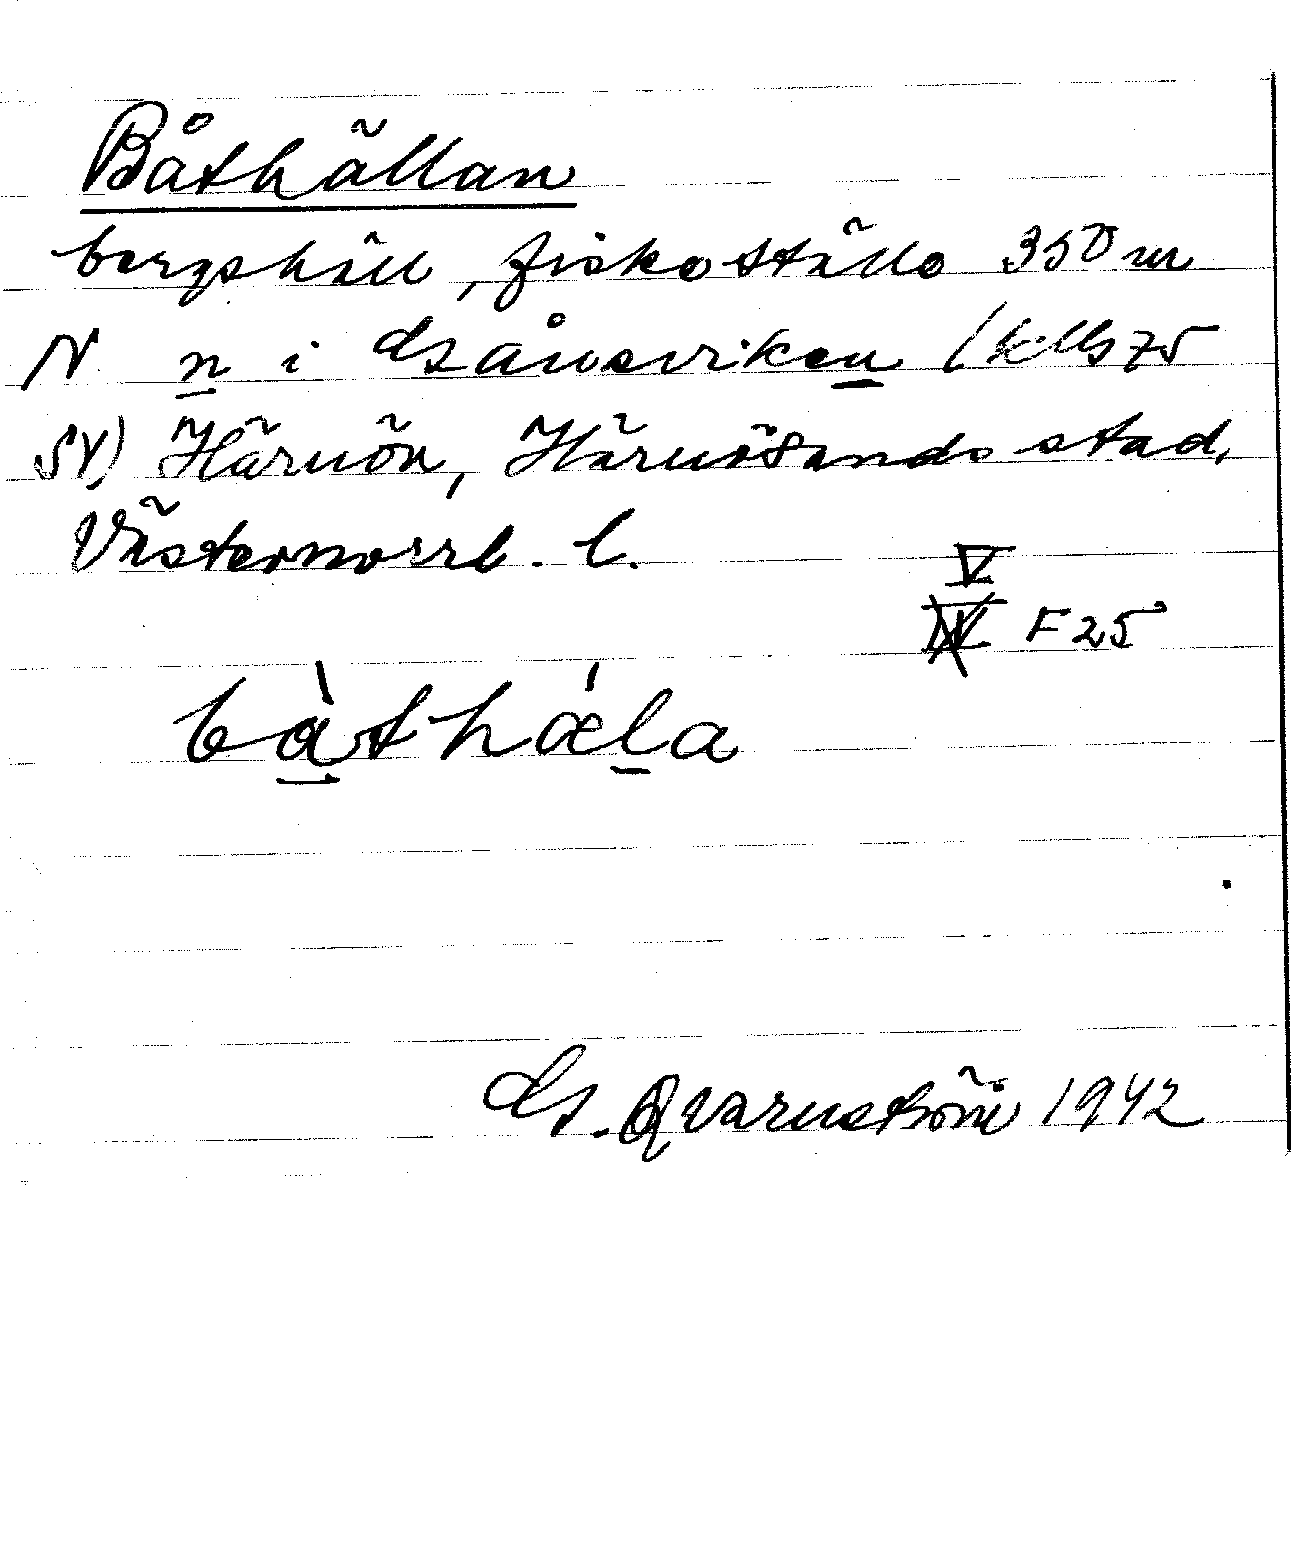 Båthällan
bergshäll, fiskeställe 350 m
N n i Gsånsviken (kbl 75
SV) Härnön, Härnösands stad,
Västernorrl. l.
V
IV F 25
bàthǽla
G. Qvarnström 1942